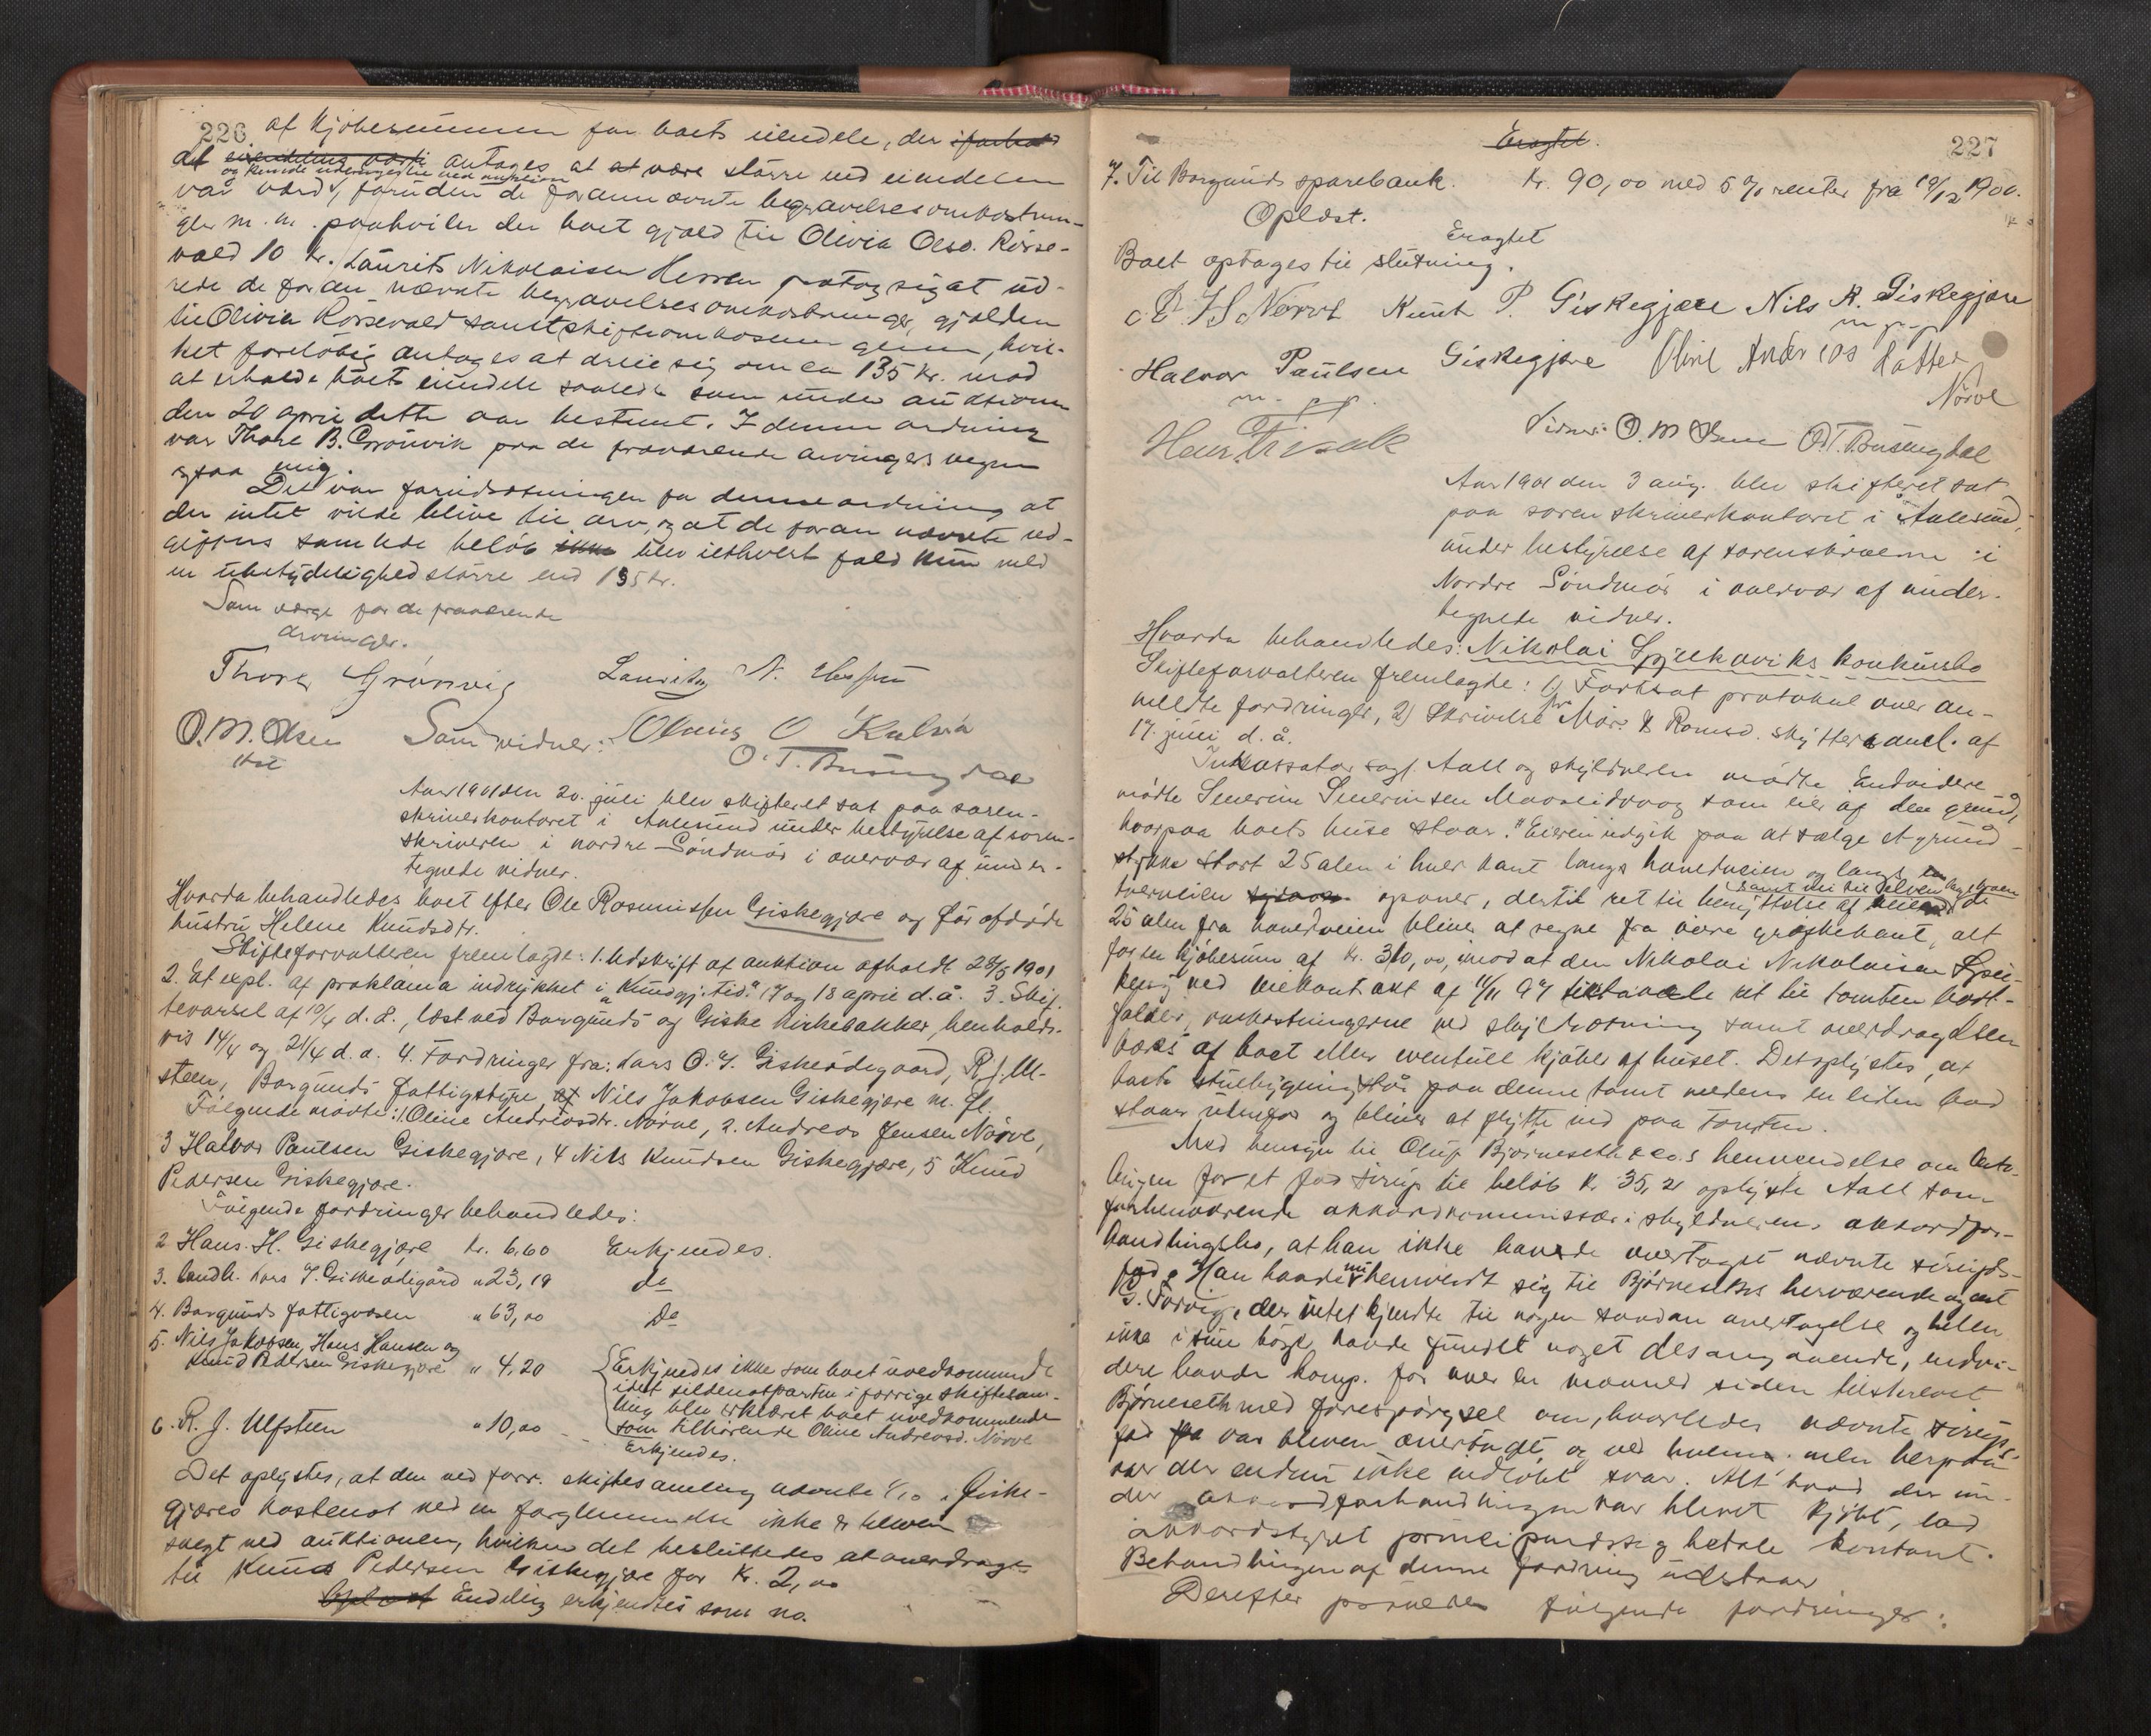 226
af kjøbesummen for boets eiendele, der iforhold
det eiendelens værdi antages at at være større end eiendelen
og kunde udbringes til ved auktion
var værd, foruden de forannævnte begravelsesomkostnin-
ger m. m. paahviler der boet gjæld til Olivia Olsd. Rörse-
vold 10 kr. Laurits Nikolaisen Hessen paatog sig at ud-
rede de foran nævnte begravelsesomkostninger, gjælden
til Olivia Rörsevold samt skifteomkostningerne, hvil-
ket foreløbig antages at dreie sig om ca 135 kr. mod
at erholde boets eiendele saaledes som under auktionen
den 20 april dette aar bestemt. I denne ordning
var Thore B. Grönvik paa de fraværende arvingers vegne
ogsaa enig.
Det var forudsætningen for denne ordning at
der intet vilde blive til arv, og at de foran nævnte ud-
gifters samlede beløb ikke blev iethvert fald kun med
en ubetydelighed større end 135 kr.
Som værge for de fraværende
arvinger.
Thore Grönvig Laurits N. Hessen
O. M. Olsen Som vidner: Olaus O Kalvö
O. T. Busengdal
Aar 1901 den 20. juli blev skifteret sat paa soren-
skriverkontoret i Aalesund under bestyrelse af soren-
skriveren i nordre Söndmör i overvær af under-
tegnede vidner.
Hvorda behandledes boet efter Ole Rasmussen Giskegjære og før afdøde
hustru Helene Knudsdtr.
Skifteforvalteren fremlagde: 1. Udskrift af auktion afholdt 28/5 1901
2. Et expl. af proklama indrykket i "Kundgj. tid." 17 og 18 april d. å. 3. Skif-
tevarsel af 10/4 d. å., læst ved Borgunds og Giske kirkebakker, henholds-
vis 14/4 og 21/4 d. a. 4. Fordringer fra: Lars O. J. Giskeødegaard, R. J. Ul-
steen, Borgunds fattigstyre, af Nils Jakobsen Giskegjære m. fl.
Følgende mødte: 1 Oline Andreasdr. Nörve, 2. Andreas Jensen Nörve,
3 Halvor Paulsen Giskegjære, 4 Nils Knudsen Giskegjære, 5 Knud
Pedersen Giskegjære.
Følgende fordringer behandledes:
2 Hans. H. Giskegjære kr. 6,60 Erkjendes.
3. landh. Lars J. Giskeødegård " 23,19 do
4. Borgunds fattigvæsen " 63,00 do
5. Nils Jakobsen, Hans Hansen og
Knud Pedersen Giskegjære " 4,20 Erkjendes ikke som boet uvedkommende
idet sildenotparten i forrige skiftesam-
ling blev erklæret boet uvedkommende
som tilhørende Oline Andreasd. Nörve
6. R. J. Ulfsteen " 10,00 Erkjendes.
Det oplystes, at den ved forr. skiftesamling nævnte 1/10 i Giske-
gjæres kastenot ved en forglemmelse ikke er bleven
solgt ved auktionen, hvilken det besluttedes at overdrage
til Knud Pedersen Giskegjære for kr. 2,00
Oplæst Endelig erkjendtes som no.
227
Eragtet.
7. Til Borgunds sparebank. kr. 90,00 med 5 % renter fra 19/12 1900.
Oplæst.
Eragtet
Boet optages til slutning.
P. J. S Nörve Knut P. Giskegjære Nils K. Giskegjære
m. p. p.
Halvor Paulsen Giskegjære Oline Andreas datter
Nörve
m. p. p.
Vidner: O. M Olsen O. T. Busengdal
Aar 1901 den 3 aug. blev skifteret sat
paa sorenskriverkontoret i Aalesund,
under bestyrelse af sorenskriveren i
Nordre Söndmör i overvær af under-
tegnede vidner.
Hvorda behandledes: Nikolai Spjelkaviks konkursbo
Skifteforvalteren fremlagde: 1) Fortsat protokol over an-
meldte fordringer, 2) Skrivelse fra Mör. & Romsd. skyttersaml. af
17. juli d. å.
Inkassator sagf. Aall og skyldneren mødte Endvidere
mødte Severin Severinsen Maaseidvaag som eier af den grund,
hvorpaa boets huse staar. Eieren indgik paa at sælge et grund-
stykke stort 25 alen i hver kant langs hovedveien og langs
tverveien opover, dertil ret til benyttelse af
samt vei til elven
25 alen fra hovedveien bliver at regne fra øvre grøftekant, alt
for en kjøbesum af kr. 310,00, imod at den Nikolai Nikolaisen Spjel-
kavig ved leiekontrakt af 11/11 97 ret til tomten bort-
falder, omkostningerne ved skyldsætning samt overdragelsen
bæres af boet eller eventuell kjøber af huset. Det oplystes, at
boets stuebygning står paa denne tomt medens en liden bod
staar udenfor og bliver at flytte ind paa tomten.
Med hensyn til Oluf Bjørneseth & Co.s henvendelse om beta-
lingen for et fad sirup til beløb kr. 35,21 oplyste Aall som
forhenværende akkordkommissær i skyldnerens akkordfor-
handlingsbo, at han ikke havde overtaget nævnte sirups-
fad. Han havde nu henvendt sig til Bjørneseths herværende agent
G. Torvig, der intet kjendte til nogen saadan overtagelse og heller
ikke i sine bøger havde fundet noget desangaaende, endvi-
dere havde komp. for over en maaned siden tilskrevet
Bjørneseth med forespørgsel om, hvorledes nævnte sirups-
fad var bleven overtaget, og ved hvem. men herpaa
var der endnu ikke indløbet svar. Alt hvad der un-
der akkordforhandlingen var blevet kjøbt, lod
akkordstyret principmæssig betale kontant.
Behandlingen af denne fordring udstaar
Derefter prøvedes følgende fordringer: